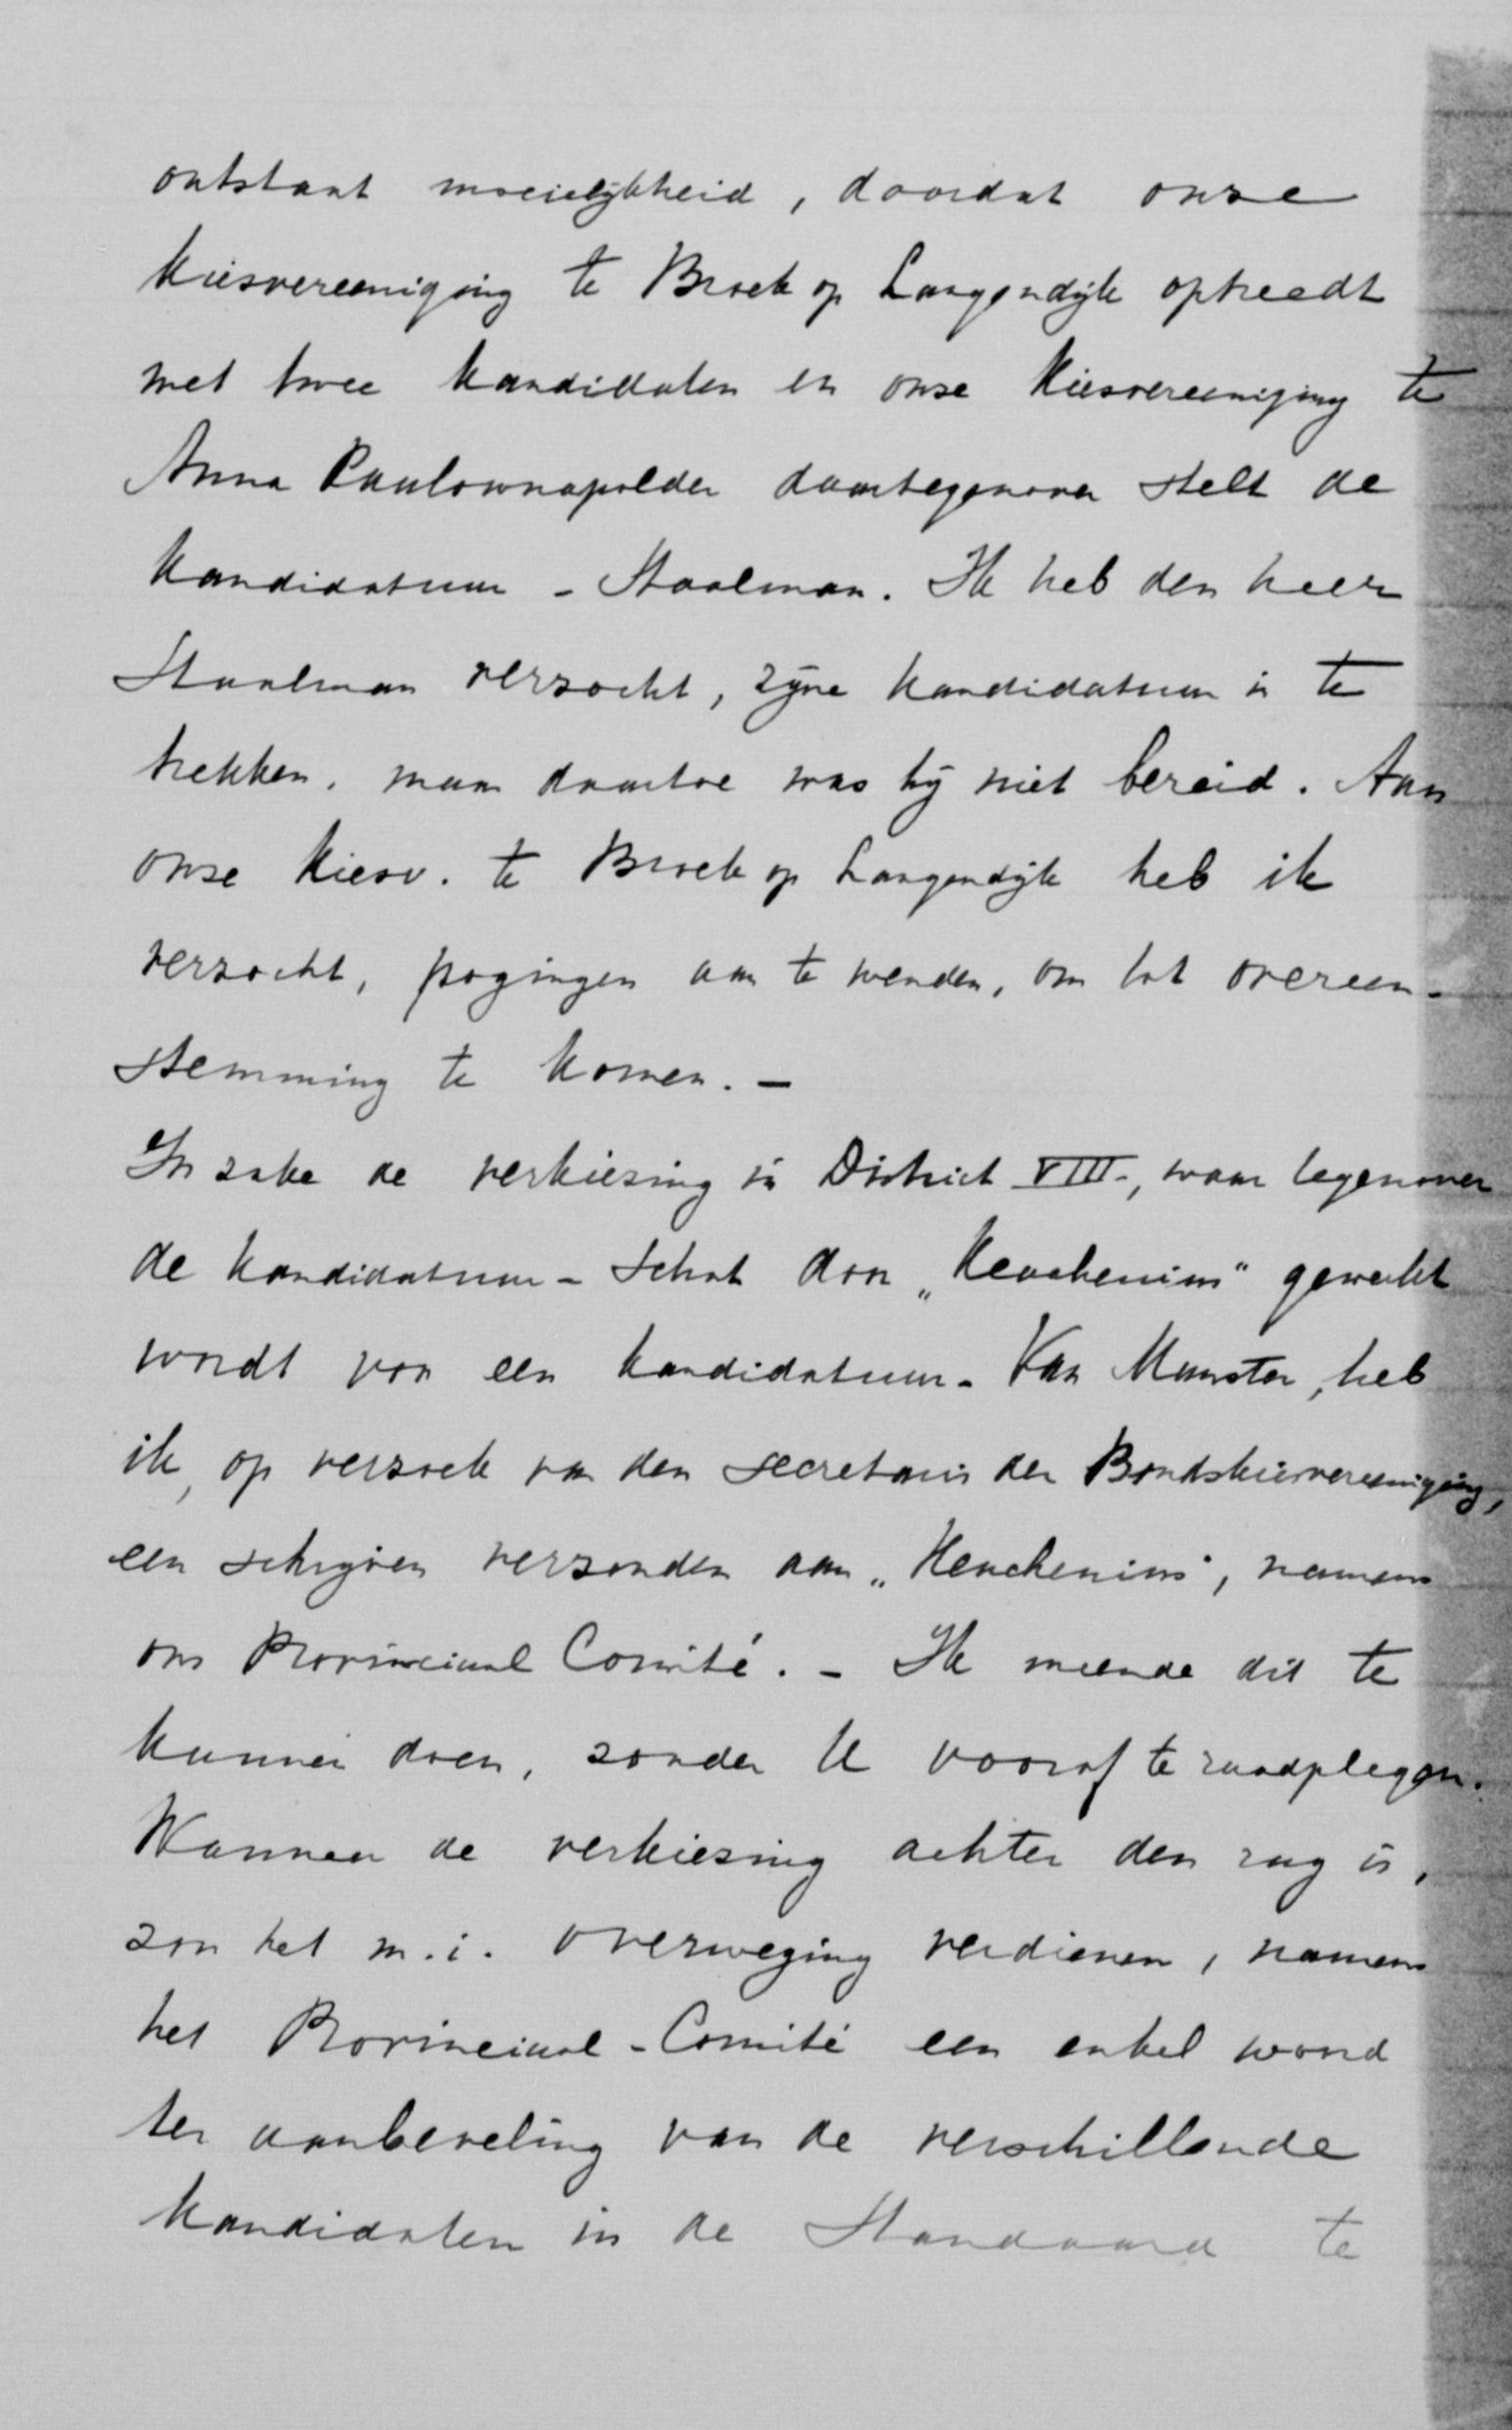 ontstaat moeielijkheid, doordat onze
kiesvereeniging te Broek op Langendijk optreedt
met twee kandidaten en onze kiesvereeniging te
Anna Paulownapolder daartegenover stelt de
kandidatuur - Staalman. Ik heb den heer
Staalman verzocht, zijne kandidatuur in te
trekken, maar daartoe was hij niet bereid. Aan
onze kiesv. te Broek op Langendijk heb ik
verzocht, pogingen aan te wenden, om tot overeen-
stemming te komen. -
In zake de verkiezing in District VIII-, waar tegenover
de kandidatuur - Schot door „Keuchenius" gewerkt
wordt voor een kandidatuur - Van Munster, heb
ik, op verzoek van den secretaris der Bondskiesvereeniging,
een schrijven verzonden aan „Keuchenius", namens
ons Provinciaal Comité. - Ik meende dit te
kunnen doen, zonder U vooraf te raadplegen.
Wanneer de verkiezing achter den rug is,
zou het m.i. overweging verdienen, namens
het Provinciaal - Comité een enkel woord
ter aanbeveling van de verschillende
kandidaten in de Standaard te